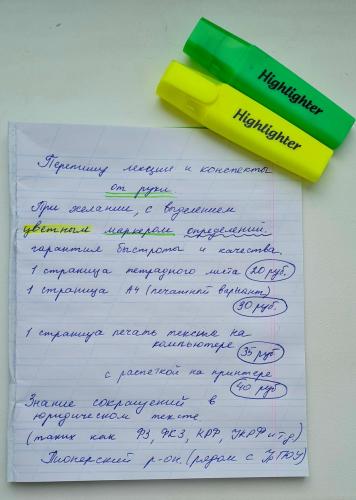 Highlighter
Highlighter
Перепишу лекции и конспекты
от руки
При желание, с выделением
цветным маркером определений,
гарантия быстроты и качества.
1 страница тетрадного листа 20 руб.
1 страница А4 (печатный вариант)
30 руб.
1 страница печать текста на
компьютере
35 руб
с распечкой на принтере
40 руб
Знание сокращений в
юридическом тексте
(таких как ФЗ, ФКЗ, КРФ, УКРФ и тд)
Пионерский р-он. (рядом с УрГЮУ)